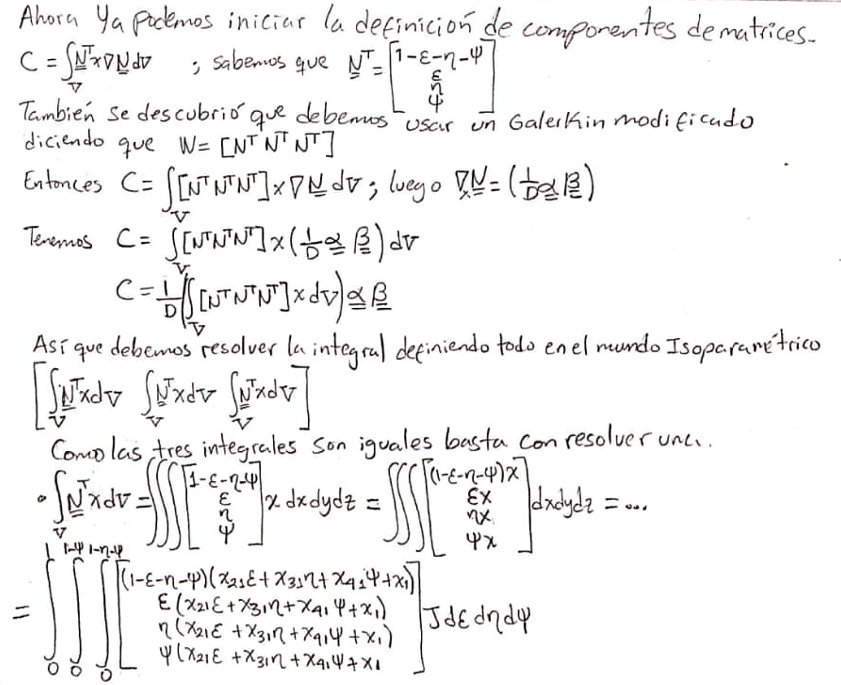 Ahora Ya podemos iniciar la definición de componentes de matrices.
C = ∫_V N^T x ∇N dV ; sabemos que N^T = [1-ε-η-ψ; ε; η; ψ]
También se descubrió que debemos usar un Galerkin modificado
diciendo que W = [N^T N^T N^T]
Entonces C = ∫_V [N^T N^T N^T] x ∇N dV ; luego ∇_x N = (1/D α β)
Tenemos C = ∫_V [N^T N^T N^T] x (1/D α β) dV
C = 1/D (∫_V [N^T N^T N^T] x dV) α β
Así que debemos resolver la integral definiendo todo en el mundo Isoparamétrico
[∫_V N^T x dV ∫_V N^T x dV ∫_V N^T x dV]
Como las tres integrales son iguales basta con resolver una.
• ∫_V N^T x dV = ∫∫∫ [1-ε-η-ψ; ε; η; ψ] x dxdydz = ∫∫∫ [(1-ε-η-ψ)x; εx; ηx; ψx] dxdydz = ...
= ∫_0^1 ∫_0^{1-ψ} ∫_0^{1-η-ψ} [(1-ε-η-ψ)(x21ε + x31η + x41ψ + x1); ε(x21ε + x31η + x41ψ + x1); η(x21ε + x31η + x41ψ + x1); ψ(x21ε + x31η + x41ψ + x1] J dε dη dψ